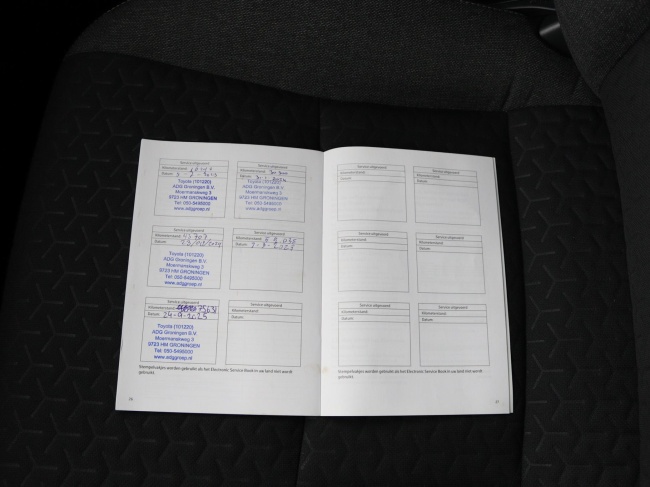 Service uitgevoerd
Kilometerstand:
Datum:
Toyota (101220)
ADG Groningen B.V.
Moermanskweg 3
9723 HM GRONINGEN
Tel: 050-5498000
www.adggroep.nl
Service uitgevoerd
Kilometerstand:
Datum:
Toyota (101220)
ADG Groningen B.V.
Moermanskweg 3
9723 HM GRONINGEN
Tel: 050-5498000
www.adggroep.nl
Service uitgevoerd
Kilometerstand:
Datum:
Toyota (101220)
ADG Groningen B.V.
Moermanskweg 3
9723 HM GRONINGEN
Tel: 050-5498000
www.adggroep.nl
Service uitgevoerd
Kilometerstand:
Datum:
Service uitgevoerd
Kilometerstand: 75631
Datum: 24-9-2025
Toyota (101220)
ADG Groningen B.V.
Moermanskweg 3
9723 HM GRONINGEN
Tel: 050-5498000
www.adggroep.nl
Service uitgevoerd
Kilometerstand:
Datum:
Stempelvakjes worden gebruikt als het Electronic Service Book in uw land niet wordt
gebruikt.
36
Service uitgevoerd
Kilometerstand:
Datum:
Service uitgevoerd
Kilometerstand:
Datum:
Service uitgevoerd
Kilometerstand:
Datum:
Service uitgevoerd
Kilometerstand:
Datum:
Service uitgevoerd
Kilometerstand:
Datum:
Service uitgevoerd
Kilometerstand:
Datum:
Stempelvakjes worden gebruikt als het Electronic Service Book in uw land niet wordt
gebruikt.
37